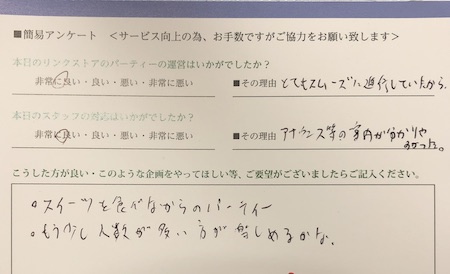 ■簡易アンケート <サービス向上の為、お手数ですがご協力をお願い致します>
本日のリンクストアのパーティーの運営はいかがでしたか?
非常に良い・良い・悪い・非常に悪い ■その理由 とてもスムーズに進行していたから。
本日のスタッフの対応はいかがでしたか?
非常に良い・良い・悪い・非常に悪い ■その理由 アナウンス等の案内が分かりや
すかった。
こうした方が良い・このような企画をやってほしい等、ご要望がございましたらご記入ください。
。スイーツを食べながらのパーティー
。もう少し人数が多い方が楽しめるかな。